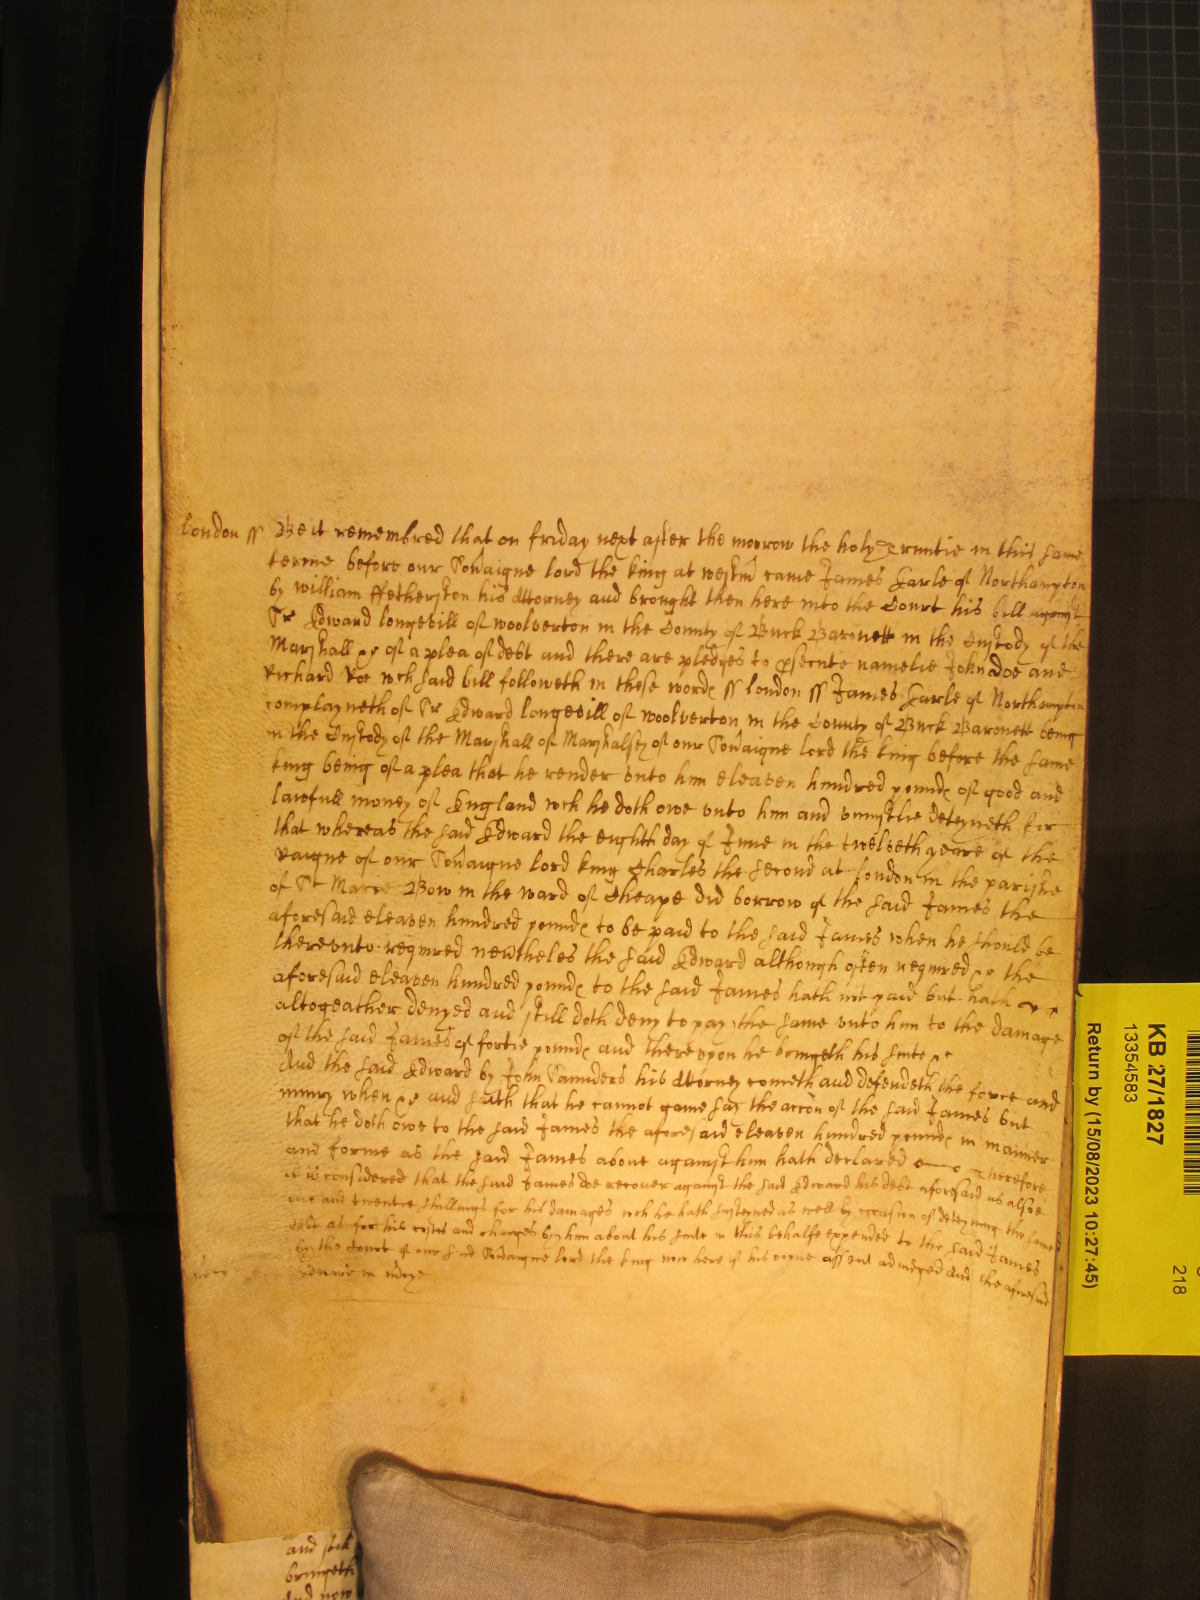 London ss Be it remembred that on friday next after the morrow the holy Trinitie in this same
terme before our Sovaigne lord the king at westm came James Earle of Northampton
by william ffetherston his Attorney and brought then here into the Court his bill against
Sr Edward longevill of woolverton in the County of Buck Baronett in the Custody of the
Marshall &c of a plea of debt and there are pledges to psecute namelie John Doe and
Richard Roe wch said bill followeth in these words ss London ss James Earle of Northampton
complayneth of Sr Edward longevill of woolverton in the County of Buck Baronett being
in the Custody of the Marshall of Marshalsey of our Sovaigne lord the king before the same
king being of a plea that he render unto him eleaven hundred pounds of good and
lawfull money of England wch he doth owe unto him and uniustlie deteyneth for
that whereas the said Edward the eighth day of June in the twelveth yeare of the
raigne of our Sovaigne lord king Charles the second at London in the parishe
of St Marie Bow in the ward of Cheape did borrow of the said James the
aforesaid eleaven hundred pounds to be paid to the said James when he should be
thereunto required nevtheles the said Edward although often required &c the
aforesaid eleaven hundred pounds to the said James hath not paid but hath
altogeather denyed and still doth deny to pay the same unto him to the damage
of the said James of fortie pounds and thereupon he bringeth his suite &c
And the said Edward by John Saunders his Attorney cometh and defendeth the force and
iniury when &c and saith that he cannot gaine say the accon of the said James but
that he doth owe to the said James the aforesaid eleaven hundred pounds in manner
and forme as the said James above against him hath declared Therefore
it is considered that the said James doe recover against the said Edward his debt aforesaid as alsoe
one and twentie shillings for his damages wch he hath susteyned as well by occasion of deteyning the same
debt as for his costes and charges by him about his suite in this behalfe expended to the said James
by the Court of our said Sovaigne lord the king now here of his owne assent adiudged And the aforesaid
Edward in mercy
and still
bringeth
And now
KB 27/1827
13354583
Return by (15/08/2023 10:27:45)
218